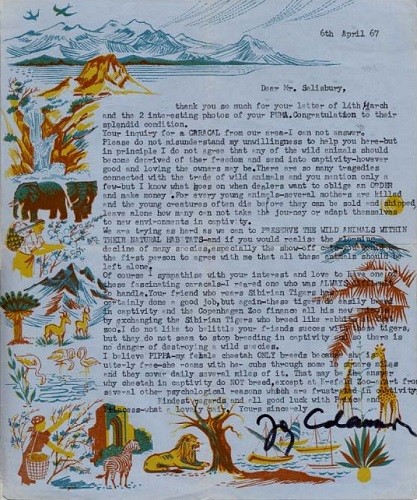 6th April 67
Dear Mr. Salisbury,
thank you so much for your letter of 14th March
and the 2 interesting photos of your PUMA.Congratulation to their
splendid condition.
Your inquiry for a CARACAL from our area-I can not answer.
Please do not misunderstand my unwillingness to help you here-but
in principle I do not agree that any of the wild animals should
become deprived of ther freedom and send into captivity-however
good and loving the owners may be.There are so many tragedies
connected with the trade of wild animals and you mention only a
few-but I know what goes on when dealers want to oblige an ORDER
and make money.For every young animals-several mothers are killed
and the young creatures often die before they can be sold and shipped
leave alone how many can not take the journey or adapt themselves
to new environments in captivity.
We are trying as hard as we can to PRESERVE THE WILD ANIMALS WITHIN
THEIR NATURAL HABITATS-and if you would realise the
decline of many species,especially the show-off cats,you would be
the first person to agree with me that all these animals should be
left alone.
Of course I sympathise with your interest and love to have one of
these fascinating caracals-I reared one who was ALWAYS
to handle.Your friend who rears Sibirian Tigers
certainly done a good job,but again-these tigers do easily breed
in captivity and the Copenhagen Zoo finances all his new
by exchanging the Sibirian Tigers who breed like rabbits in
zoo.I do not like to belittle your friends succes with these tigers,
but they do not seem to stop breeding in captivity and so there is
no danger of destroying a wild species.
I believe PIPPA-my female cheetah ONLY breeds because she is
utterly free-she roams with her cubs through some square miles
and they cover daily several miles of it. That may be the answer
why cheetah in captivity do NOT breed,except at Krefeld Zoo-apart from
several other psychological reasons which are frustrated in captivity
Kindest regards and all good luck with Prince and
Princess-what a lovely pair. Yours sincerely
Joy Adamson